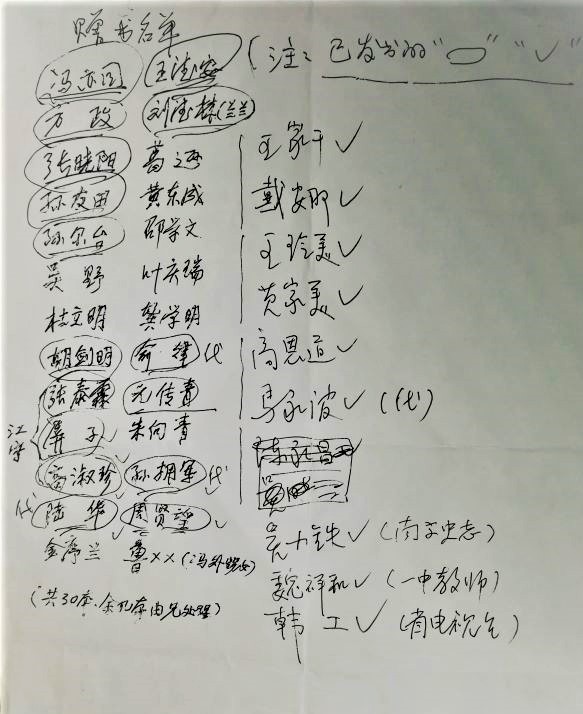 赠书名单
(注：已发书的"○""✓"
冯亦同 王德安
方政 刘德林(兰兰)
张晓阳 葛逊
孙友田 黄东成
孙尔台 邵学文
吴野 叶庆瑞
桂文明 龚学明
胡剑明 俞律 代
张泰霖 元传青
江宁 昇子 朱向青
高淑珍✓ 孙拥军 代✓
代 陆华✓ 周贤望✓
金序兰 曹××(冯外甥女)
(共30本，余几本由兄处理)
王家干✓
戴安娜✓
王玲美✓
黄家美✓
高恩道✓
马永波✓(代)
陈永昌
吴小铁✓(南京史志)
魏祥和✓(一中教师)
韩工✓(省电视台)